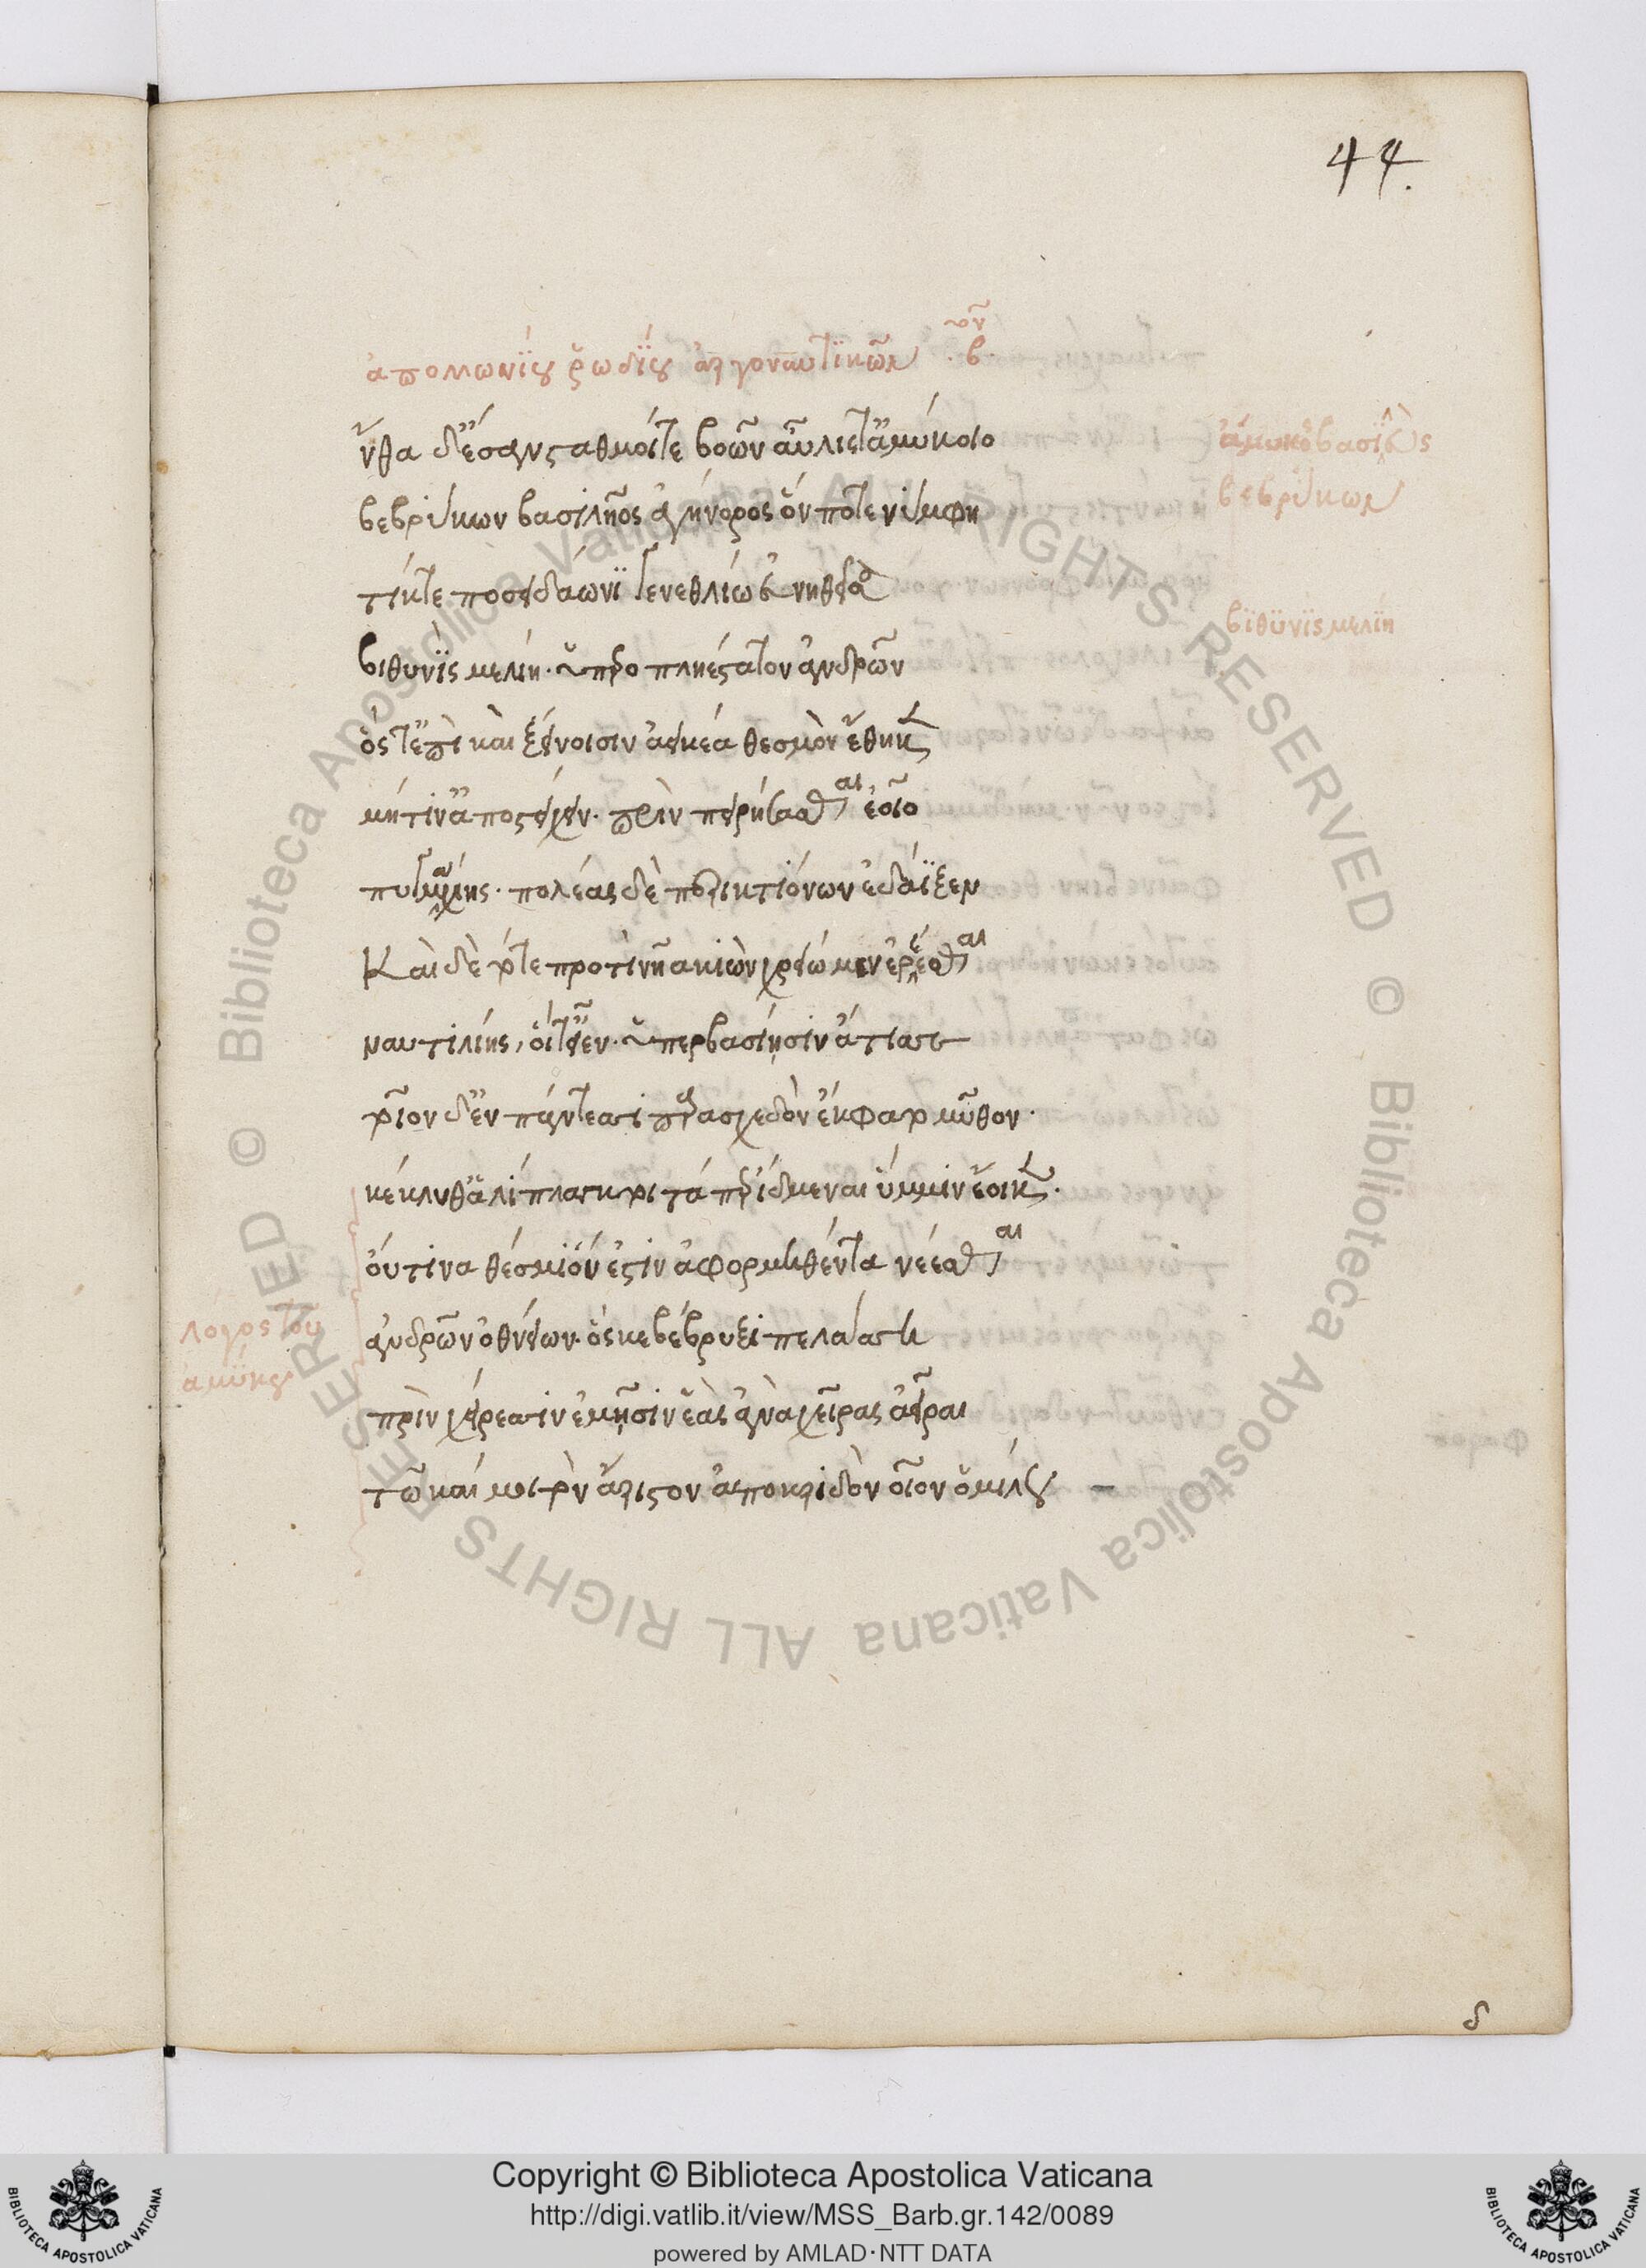 44.
ἀπολλωνίου ῥωδίου ἀργοναυτικῶν .β.ον
ἄμυκος βασιλεὺς
βεβρύκων
νθα δ' ἔσαν σταθμοί τε βοῶν αὖλίς τ' ἀμύκοιο
βεβρύκων βασιλῆος ἀγήνορος ὅν ποτε νύμφη
τίκτε ποσειδάωνι γενεθλίω εὐνηθεῖσα
βιθυνὶς μελίη
βιθυνὶς μελίη. ὑπεροπληέστατον ἀνδρῶν
ὅς τ' ἐπὶ καὶ ξείνοισιν ἀεικέα θεσμὸν ἔθηκεν
μήτιν' ἀποστείχειν. πρὶν πειρήσασθαι ἑοῖο
πυγμαχίης. πολέας δὲ περικτιόνων ἐδάϊξεν
Καὶ δὲ τότε προτὶ νῆα κιὼν χρειώ μεν ἐρέεσθαι
ναυτιλίης, οἵ τ' εἶεν. ὑπερβασίησιν ἄτισσε
τοῖον δ' ἐν πάντεσσι παρασχεδὸν ἔκφατο μῦθον.
κέκλυθ' ἁλίπλαγκτοι τά περ ἴδμεναι ὔμμιν ἔοικεν.
οὔτινα θέσμιόν ἐστιν ἀφορμηθέντα νέεσθαι
λόγος τοῦ
ἀμύκου
ἀνδρῶν ὀθνείων. ὅς κε βέβρυξι πελάσση
πρὶν χείρεσσιν ἐμῆσιν ἑὰς ἀνὰ χεῖρας ἀεῖραι
τῶ καί μοι τὸν ἄριστον ἀποκριδὸν οἶον ὁμίλου –
δ
© Biblioteca Apostolica Vaticana ALL RIGHTS RESERVED © Biblioteca Apostolica Vaticana ALL RIGHTS RESERVED
Copyright © Biblioteca Apostolica Vaticana
http://digi.vatlib.it/view/MSS_Barb.gr.142/0089
powered by AMLAD·NTT DATA
BIBLIOTECA APOSTOLICA VATICANA
BIBLIOTECA APOSTOLICA VATICANA